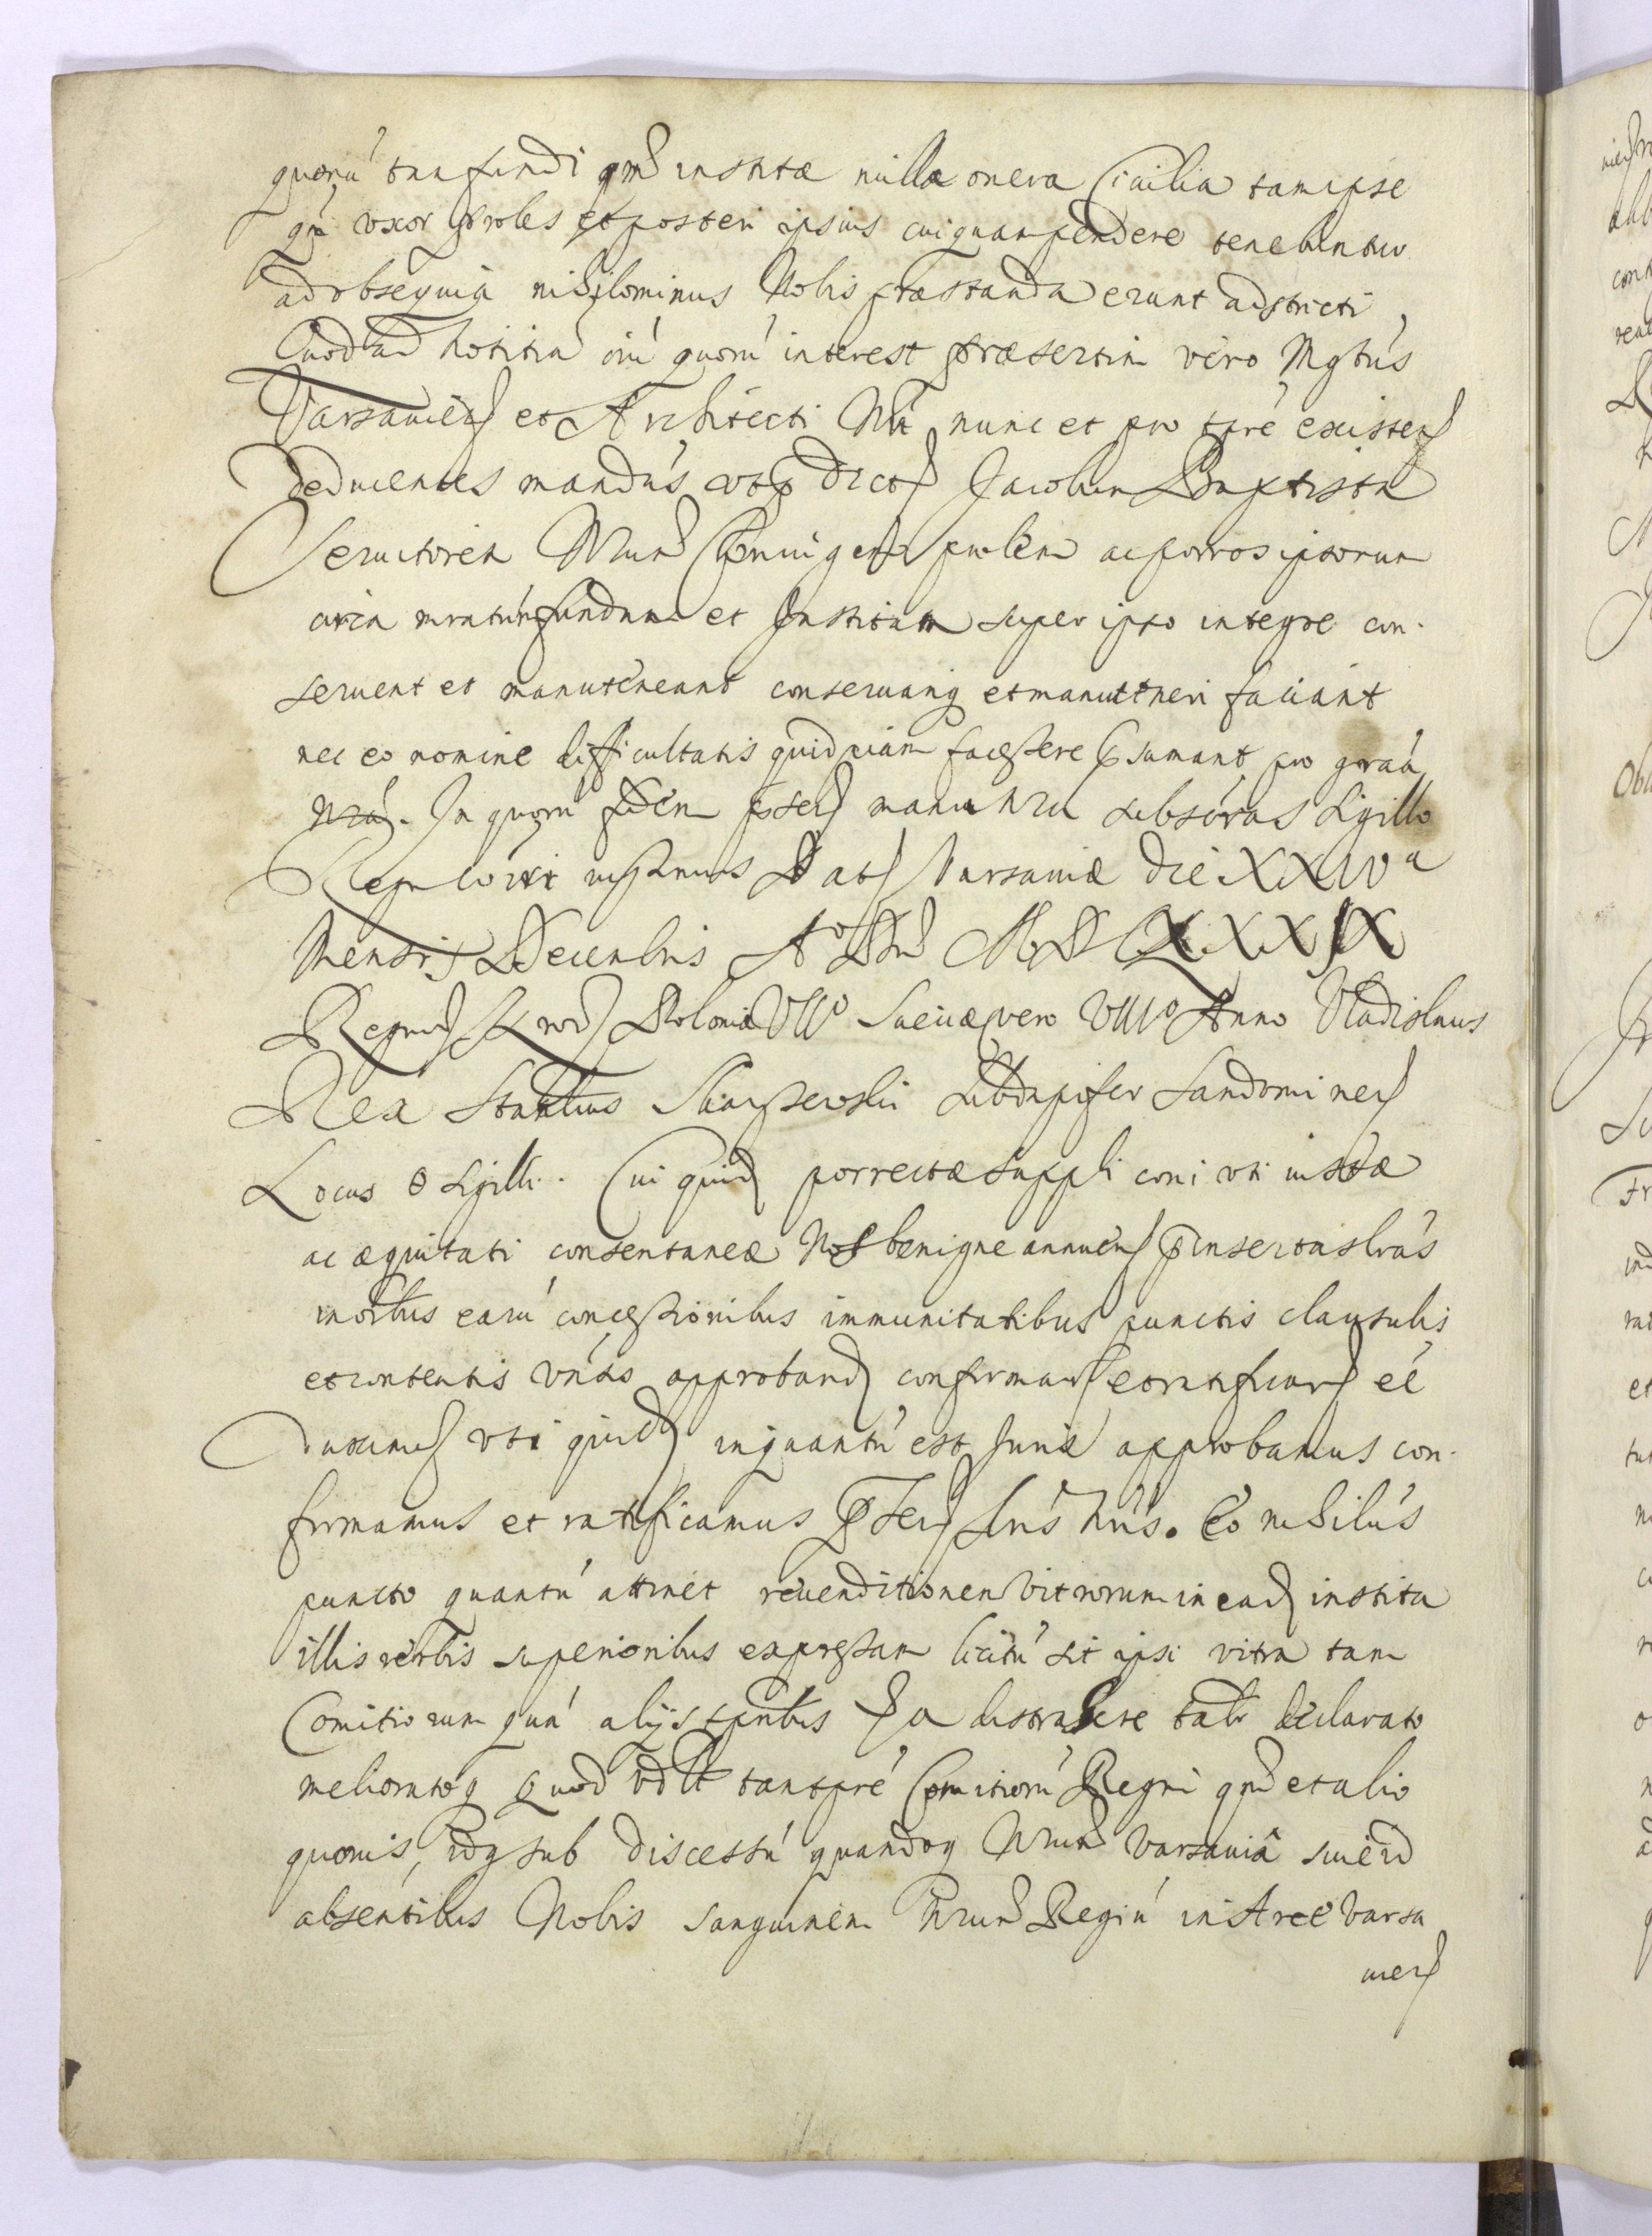 quorú tan fundi qm̃ institæ nulla onera Ciuilia tam ipse
qũ vxor proles et posteri ipsius cuiquam pendere tenebuntur
ad obsequia nihilominus Nobis præstanda erunt adstricti,
Quod ad notitiá oiú quorú interest præsertim vero Mgtús
Varsauien et Architecti Nri nunc et pro tpre existen
deducentes mandús vt dict Jacobum Baptistā
Seruitorem Nrum Coniugem prolem ac porros ipsorum
circa fundum et Institam super ipso integre con-
seruent et manuteneant conseruariq et manutneri faciant
nec eo nomine difficultatis quidpiam facessere psumant pro graá
nrá. In quorú fidem psen manu nra subscrás Sigillo
Regni coíri iussimus Dat Varsauiæ die XXIVa
Mensis Decembris Ao Dni MDCXXXIX
Regnor Nror Poloniæ VIIo Sueciæ vero VIIIo Anno Vladislaus
Rex Stanlius Skarszewski Subdapifer Sandomirien
Locus O Sigilli. Cui quid porrectæ suppli coni vti iustæ
ac æquitati consentaneæ Nos benigne annuen pinsertas lrás
in oibus earú concessionibus immunitatibus punctis clausulis
et contentis vnits approband confirmand et ratificand eé
duximus vti quid inquantú est Juris approbamus con-
firmamus et ratificamus psen lrís nrís. Eo nihilús
puncto quantú attinet reuenditionem vitrorum in ead instita
illis verbis superioribus expressam licitú sit ipsi vitra tam
Comitiorum quá alijs tpribus distrahere talr declarato
melioratoq Quod vdlt tam tpré Comitiorú Regni qm̃ et alio
quouis, idq sub discessú quandoq Nrum Varsauiâ siue id
absentibus Nobis sanguinem Nrum Regiú in Arce Varsa
uien